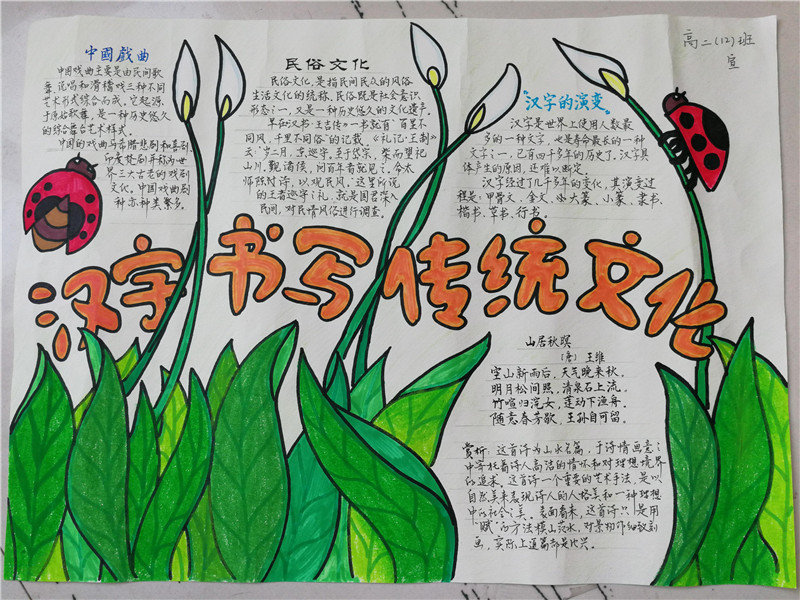 高二(12)班
宣
中國戲曲
中国戏曲主要是由民间歌
舞、说唱和滑稽戏三种不同
艺术形式综合而成。它起源
于原始歌舞,是一种历史悠久
的综合舞台艺术样式。
中国的戏曲与希腊悲剧和喜剧、
印度梵剧并称为世
界三大古老的戏剧
文化。中国戏曲剧
种亦种类繁多。
民俗文化
民俗文化,是指民间民众的风俗
生活文化的统称。民俗既是社会意识
形态之一,又是一种历史悠久的文化遗产。
早在汉书·王吉传》一书就有“百里不
同风,千里不同俗”的记载。《礼记·王制》
云:“岁二月,东巡守,至于岱宗,柴而望祀
山川,觐诸侯,问百年者就见之。命太
师陈诗,以观民风。这里所说
的王者巡守之礼,就是国君深入
民间,对民情风俗进行调查。
汉字的演变
汉字是世界上使用人数最
多的一种文字,也是寿命最长的一种
文字之一,已有四千多年的历史了,汉字具
体产生的原因,还难以断定。
汉字经过了几千多年的变化,其演变过
程是:甲骨文、金文、大篆、小篆、隶书、
楷书、草书、行书。
汉字书写传统文化
山居秋暝
(唐) 王维
空山新雨后,天气晚来秋。
明月松间照,清泉石上流。
竹喧归浣女,莲动下渔舟。
随意春芳歇,王孙自可留。
赏析:这首诗为山水名篇,于诗情画意之
中寄托着诗人高洁的情怀和对理想境界
的追求。这首诗一个重要的艺术手法,是以
自然美来表现诗人的人格美和一种理想
中的社会之美。表面看来,这首诗只是用
“赋”的方法模山范水,对景物作细致刻
画,实际上通篇都是比兴。